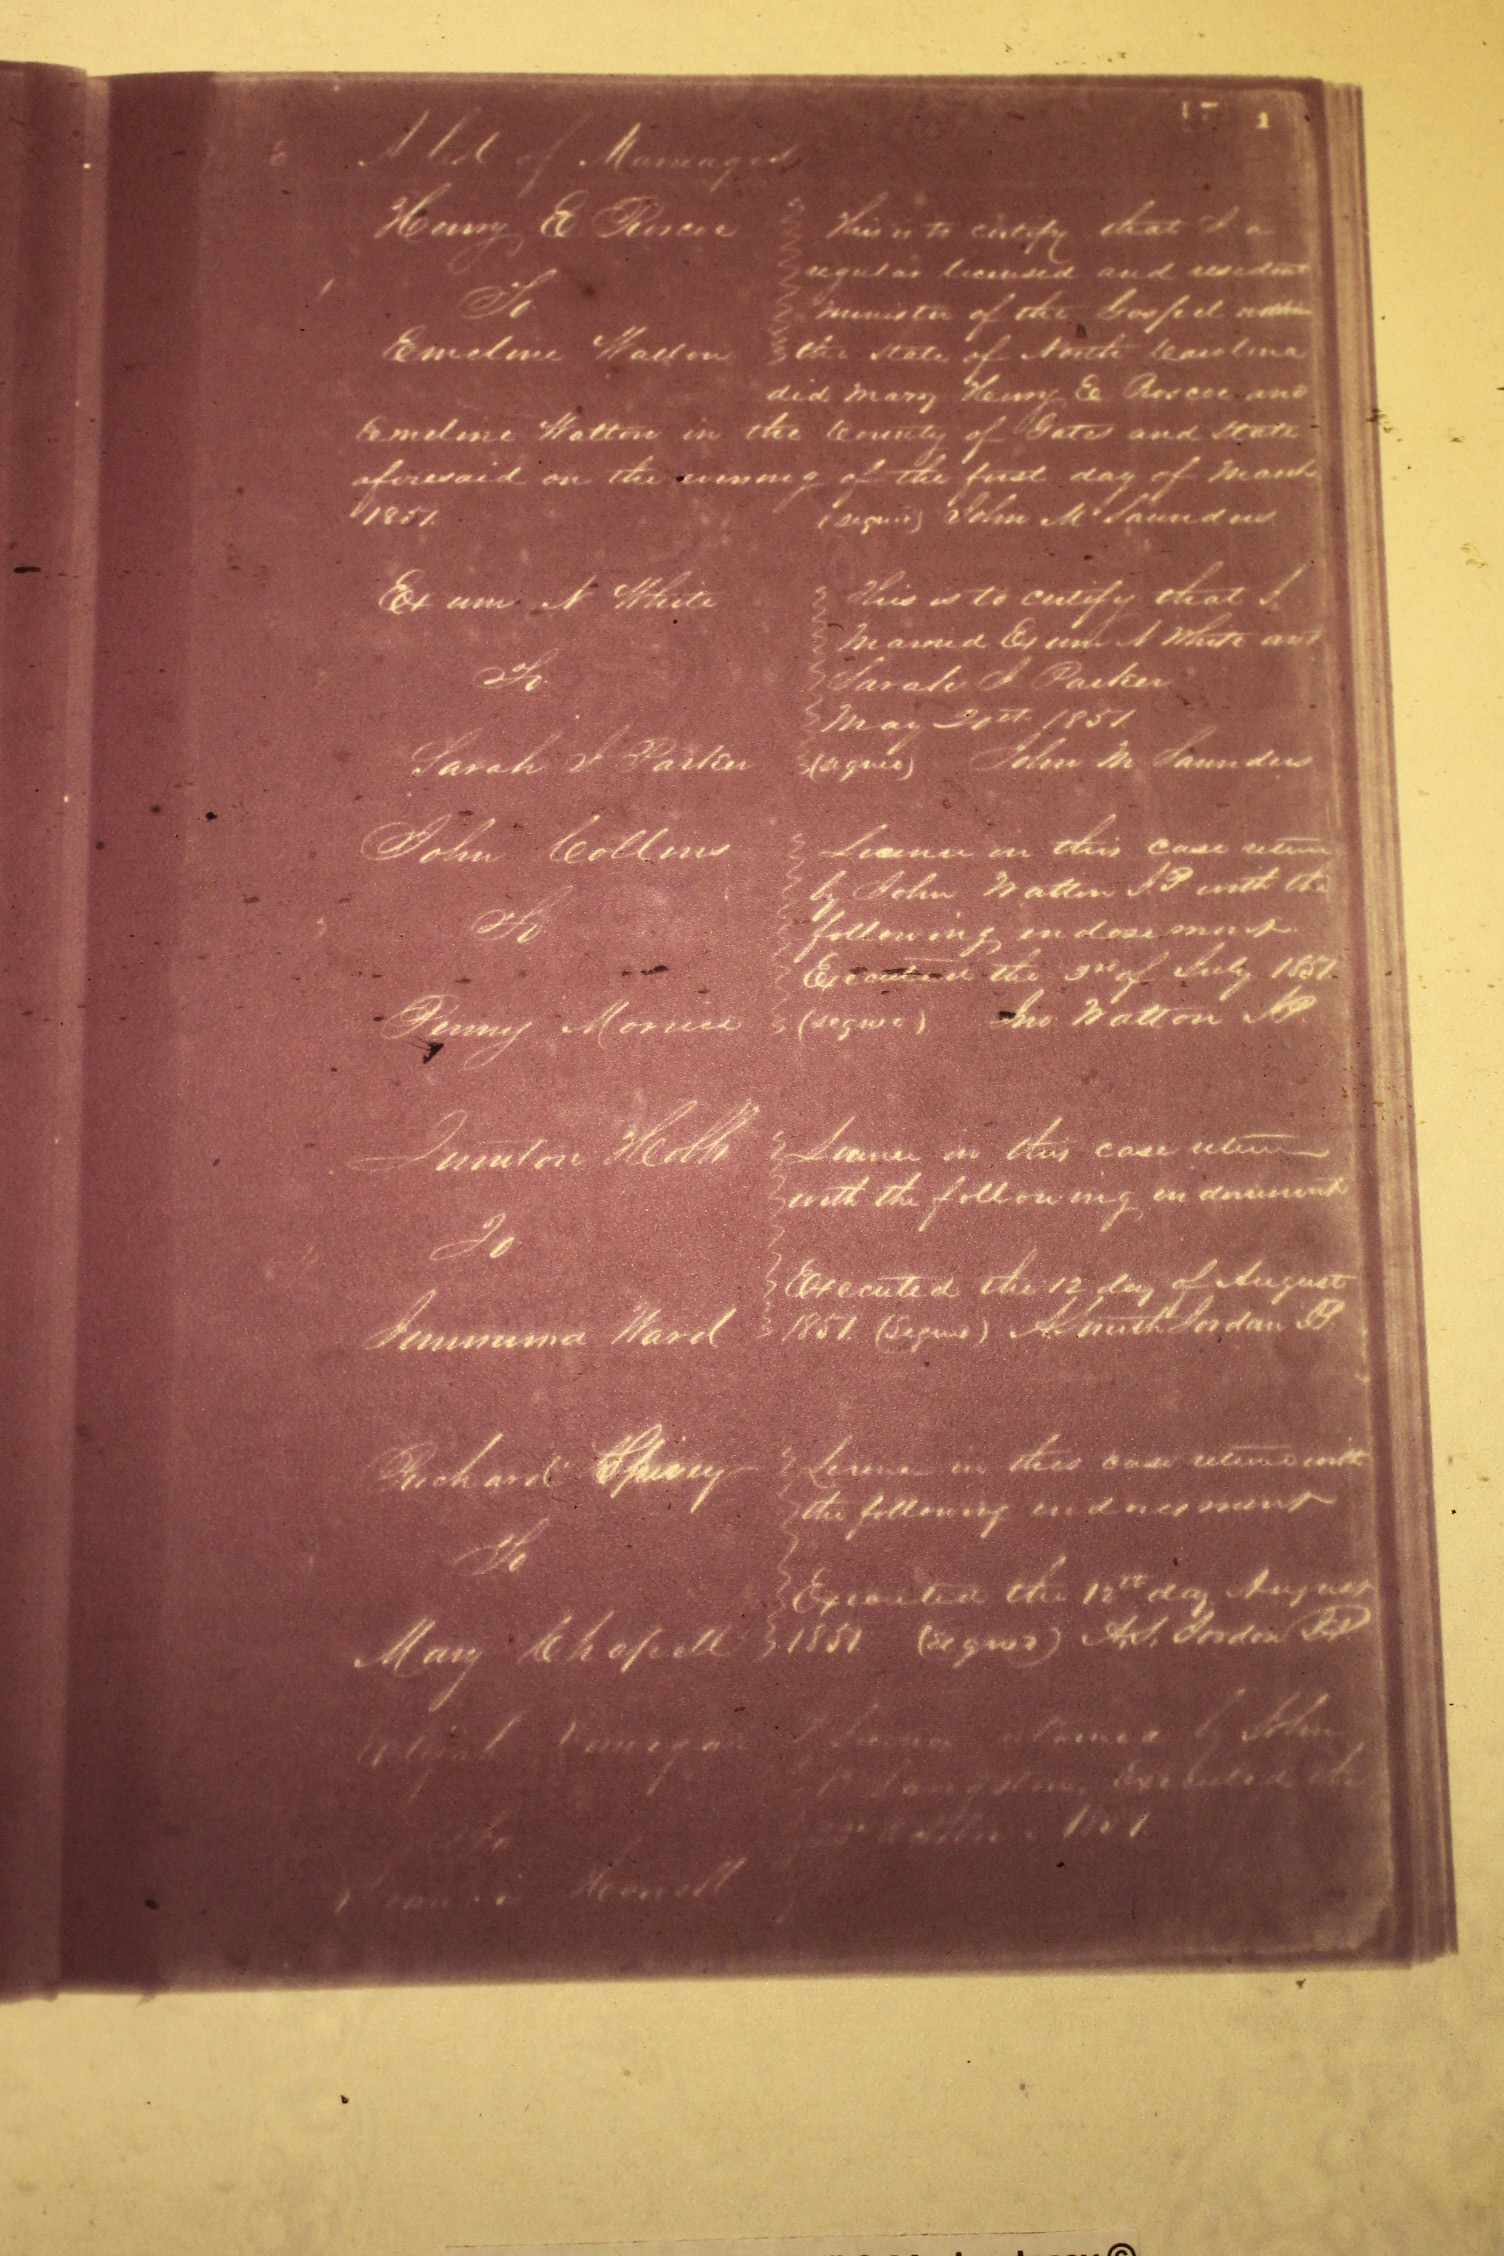 1
A list of Marriages
Henry E Roscoe
To
Emeline Walton
This is to certify that I a
regular licensed and resident
minister of the Gospel within
the State of North Carolina
did marry Henry E Roscoe and
Emeline Walton in the County of Gates and State
aforesaid on the evening of the first day of March
1851. (signed) John M Saunders
Exum N White
To
Sarah J Parker
This is to certify that I
Married Exum N White and
Sarah J Parker
May 1851
(signed) John M Saunders
John Collins
To
Penny
Licence in this case return
by John Walton J.P with the
following endosement
Executed the 3rd of July 1851.
(signed) Jno Walton JP.
To
Jemmima Ward
Licence in this case return
with the following endorsement
Executed the 12 day of August
1851. (signed) Jordan JP
Richard Spivey
To
Mary Chapell
Licence in this case return with
the following endorsement
Executed the 12th day August
1851 (signed) A.S. Jordan JP
Elijah
To
Howell
Licence returned by John
Langston, Executed the
1851.